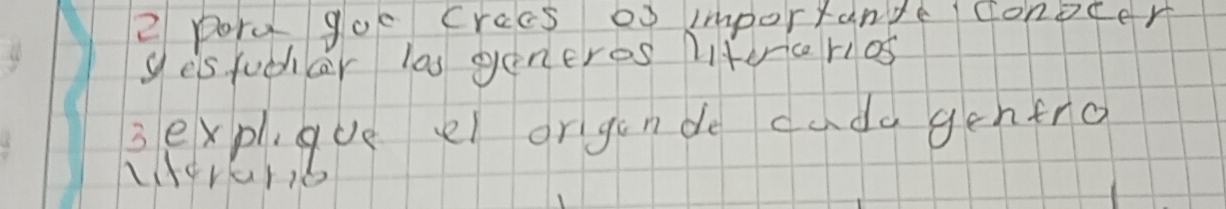 2 pora que crees es importante conocer
y estudiar los generos literarios
3 explique el origen de cada genero
literario